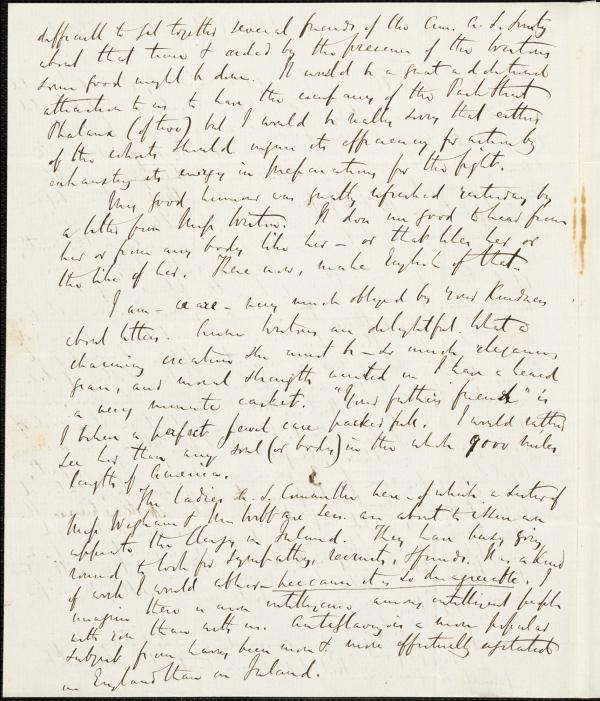 difficult to get together several friends of the Am. A. S. Society
about that time & aided by the presence of the Westons
some good might be done. It would be a great additional
attraction to us to have the company of the Park Street
Phalanx (of two) but I would be really sorry that either
of the cohorts should injure its efficiency for action by
exhausting its energy in preparations for the fight.
My good humour was greatly refreshed yesterday by
a letter from Miss Weston. It does me good to hear from
her or from any body like her - or that likes her or
the like of her. There now, make English of that.
I am - we are - very much obliged by your kindness
about letters. Anne Westons are delightful. What a
charming creature she must be - so much elegance,
grace, and moral strength united in
a very minute casket. "Your father's friend" is
I have a heard
I taken a perfect jewel case packed full. I would rather
see her than any soul (or body) in the whole 9000 miles
length of America.
The Ladies A. S. Committee here - of which a sister of
Miss Wigham & Mrs Webb are Secs. are about to issue an
appeal to the Clergy in Ireland. They have been going
round to look for sympathy, recruits, & funds. It is a kind
of work I would abhor because it is so disagreeable. I
imagine there is more intelligence among intelligent people
with you than with us. Antislavery is a more popular
subject from having been more & more effectually agitated
in England than in Ireland.